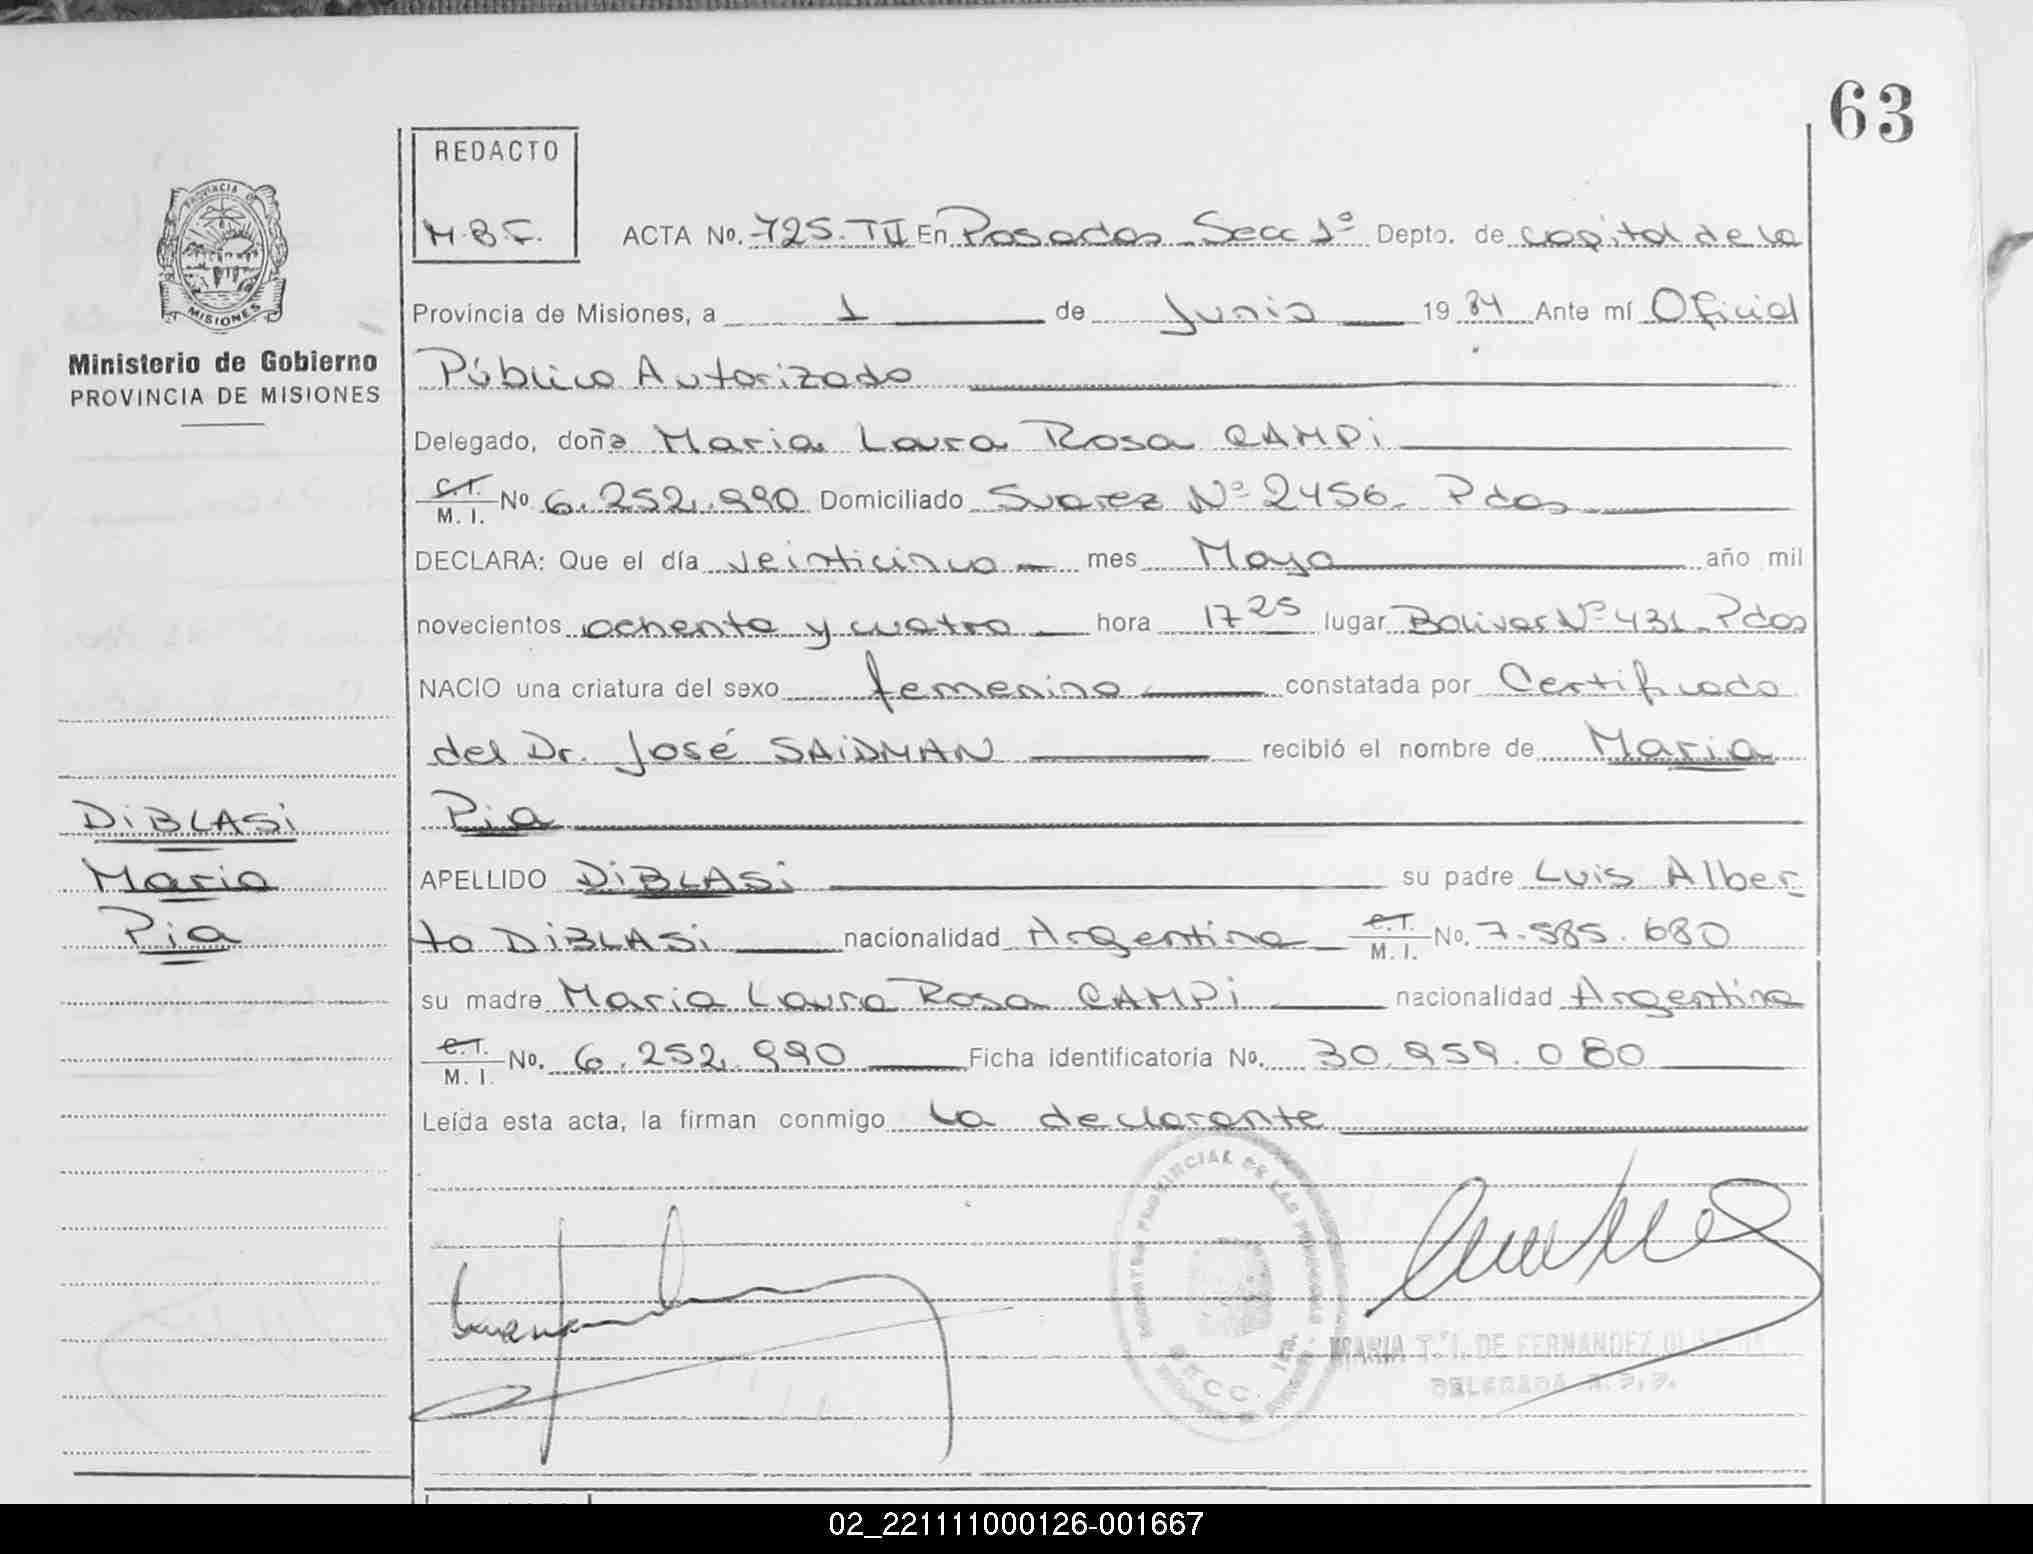 63
REDACTO
M.B.F.
ACTA No. 725.TII En Posadas Secc 1° Depto. de Capital de la
Provincia de Misiones, a 1 de Junio 1984 Ante mí Oficial
Público Autorizado
Delegado, doña Maria Laura Rosa CAMPi
C.I. M. I. No 6.252.990 Domiciliado Suarez Nº 2456. Pdas
DECLARA: Que el día veinticinco mes Mayo año mil
novecientos ochenta y cuatro hora 17 25 lugar Bolivar Nº 431. Pdas
NACIO una criatura del sexo femenino constatada por Certificado
del Dr. José SAiDMAN recibió el nombre de Maria
Pia
APELLIDO DiBLASi su padre Luis Alber
to DiBLASi nacionalidad Argentina C.I. M. I. No. 7.585.680
su madre Maria Laura Rosa CAMPi nacionalidad Argentina
C.I. M. I. No. 6.252.990 Ficha identificatoria No. 30.959.080
Leída esta acta, la firman conmigo la declarante
PROVINCIA DE
MISIONES
Ministerio de Gobierno
PROVINCIA DE MISIONES
DiBLASi
Maria
Pia
PROVINCIAL DE LAS PERSONAS
SECC. 1ra.
MARIA T. I. DE FERNANDEZ
DELEGADA R.P.P.
02_221111000126-001667